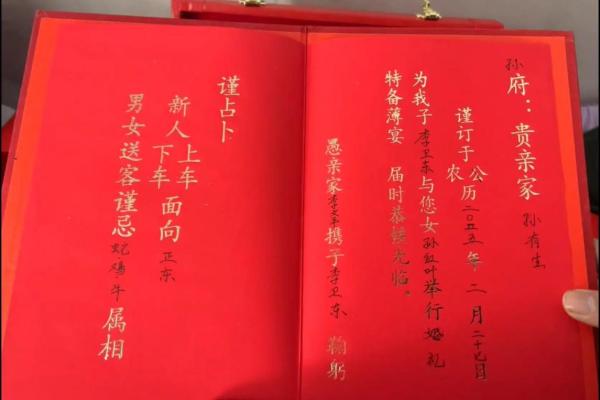 孙府：贵亲家 孙有生
谨订于 公历 农 二〇二五年二月二十七日
为我子李卫东与您女孙红叶举行婚礼
特备薄宴 届时恭候光临。
愚亲家李文平携子李卫东 鞠躬
谨占卜
新人上车 下车 面向正东
男女送客谨忌蛇鸡牛属相